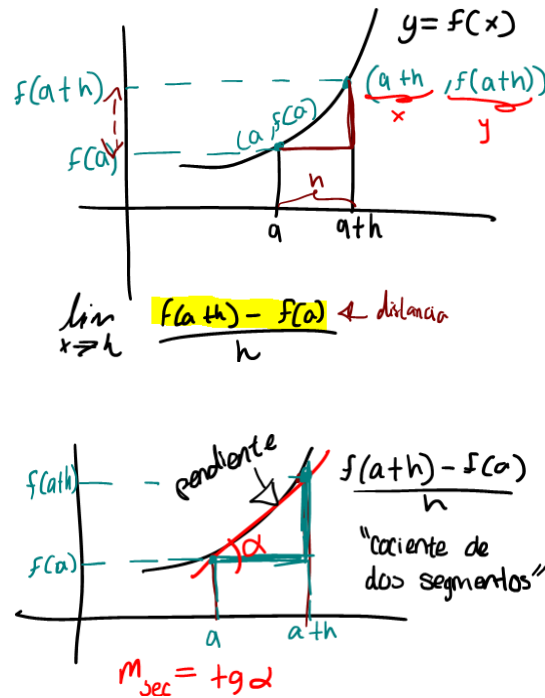 y = f(x)
f(a+h)
(a+h , f(a+h))
x
y
(a, f(a))
f(a)
h
a
a+h
lim f(a+h) - f(a) ← distancia
x→h h
pendiente
f(a+h)
f(a+h) - f(a)
h
α
f(a)
"cociente de
dos segmentos"
a
a+h
m sec = tg α